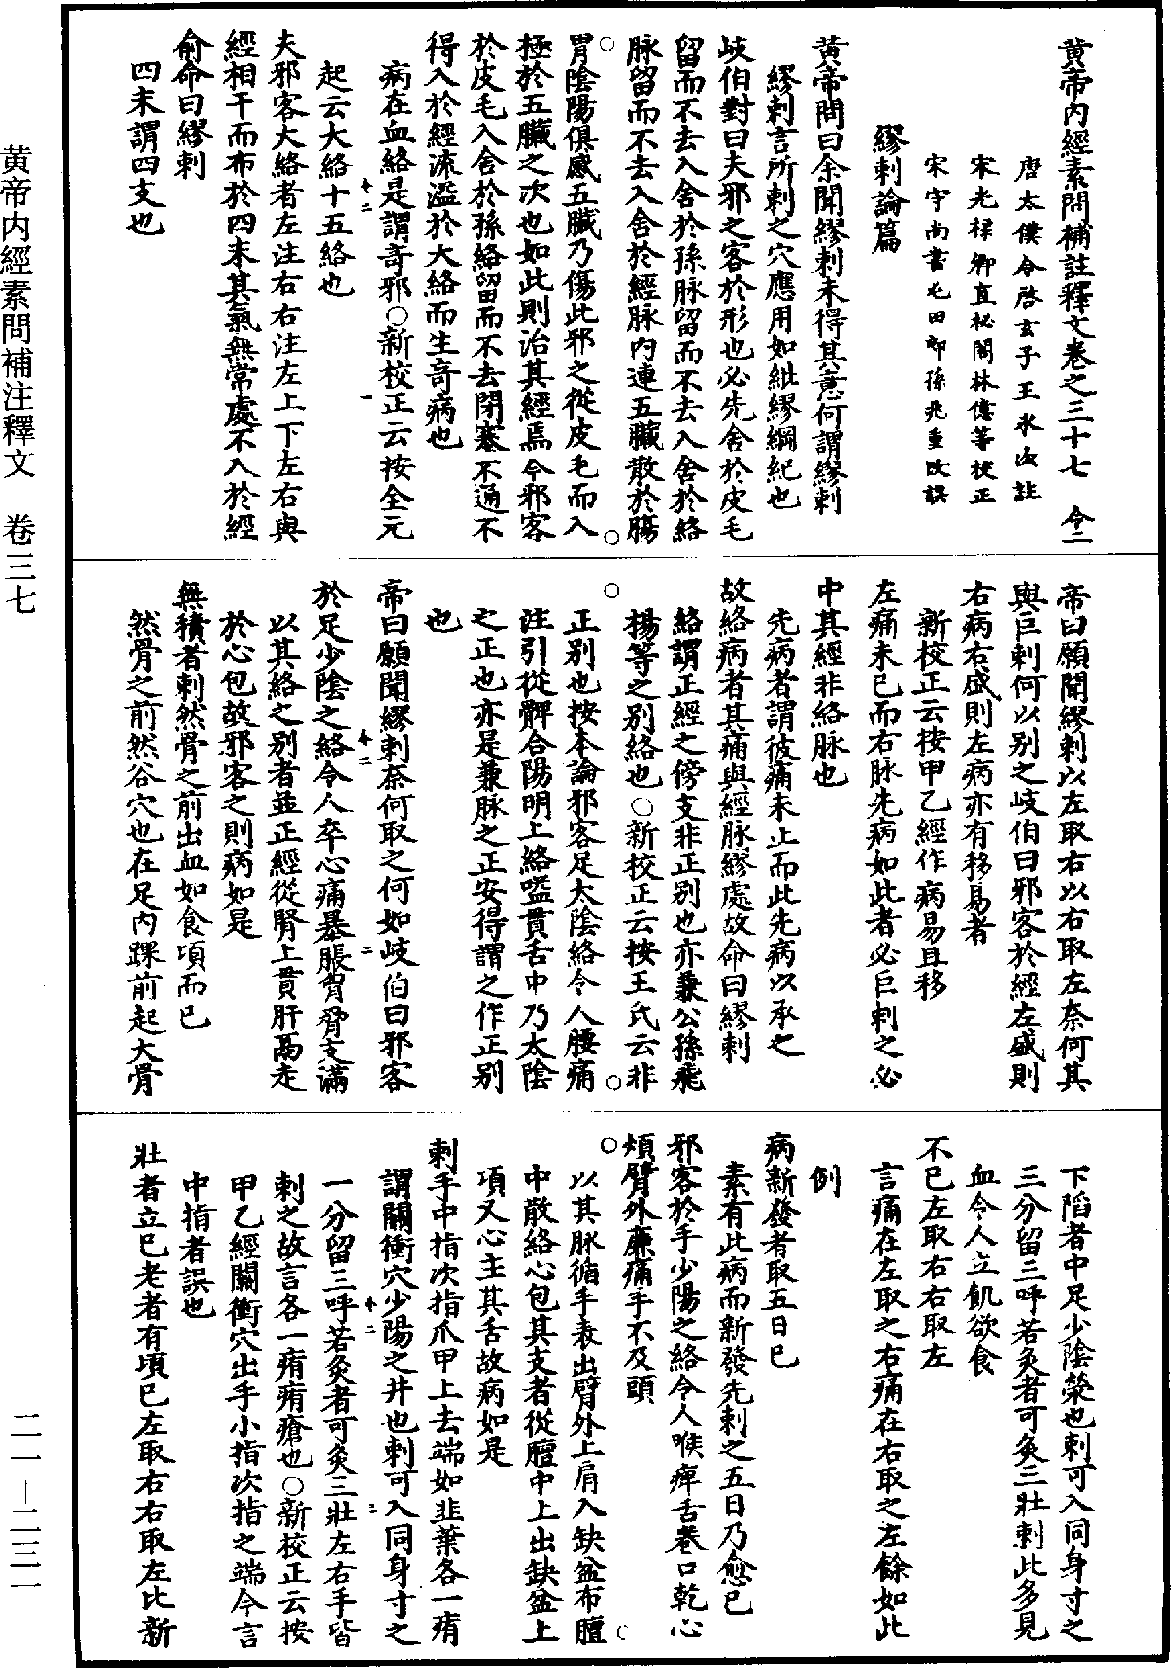 黃帝內經素問補註釋文卷之三十七　令二
唐太僕令啓玄子王氷次註
宋光祿卿直秘閣林億等校正
宋守尚書屯田郎孫兆重改誤
繆刺論篇
黃帝問曰余聞繆刺未得其意何謂繆刺
繆刺言所刺之穴應用如紕繆綱紀也
歧伯對曰夫邪之客於形也必先舍於皮毛
留而不去入舍於孫脉留而不去入舍於絡
脉留而不去入舍於經脉內連五臟散於腸
胃陰陽俱感五臟乃傷此邪之從皮毛而入
極於五臟之次也如此則治其經焉今邪客
於皮毛入舍於孫絡留而不去閉塞不通不
得入於經流溢於大絡而生奇病也
病在血絡是謂奇邪○新校正云按全元
起云大絡十五絡也
夫邪客大絡者左注右右注左上下左右與
經相干而布於四末其氣無常處不入於經
俞命曰繆刺
四末謂四支也
帝曰願聞繆刺以左取右以右取左奈何其
與巨刺何以別之歧伯曰邪客於經左盛則
右病右盛則左病亦有移易者
新校正云按甲乙經作病易且移
左痛未已而右脉先病如此者必巨刺之必
中其經非絡脉也
先病者謂彼痛未止而此先病以承之
故絡病者其痛與經脉繆處故命曰繆刺
絡謂正經之傍支非正別也亦兼公孫飛
揚等之別絡也○新校正云按王氏云非
正別也按本論邪客足太陰絡令人腰痛
注引從髀合陽明上絡嗌貫舌中乃太陰
之正也亦是兼脉之正安得謂之作正別
也
帝曰願聞繆刺奈何取之何如歧伯曰邪客
於足少陰之絡令人卒心痛暴脹胷脅支滿
以其絡之別者並正經從腎上貫肝鬲走
於心包故邪客之則病如是
無積者刺然骨之前出血如食頃而已
然骨之前然谷穴也在足內踝前起大骨
下陷者中足少陰滎也刺可入同身寸之
三分留三呼若灸者可灸三壯刺此多見
血令人立飢欲食
不已左取右右取左
言痛在左取之右痛在右取之左餘如此
例
病新發者取五日已
素有此病而新發先刺之五日乃愈已
邪客於手少陽之絡令人喉痺舌卷口乾心
煩臂外廉痛手不及頭
以其脉循手表出臂外上肩入缺盆布膻
中散絡心包其支者從膻中上出缺盆上
項又心主其舌故病如是
刺手中指次指爪甲上去端如韭葉各一痏
謂關衝穴少陽之井也刺可入同身寸之
一分留三呼若灸者可灸三壯左右手皆
刺之故言各一痏痏瘡也○新校正云按
甲乙經關衝穴出手小指次指之端今言
中指者誤也
壯者立已老者有頃已左取右右取左比新
黃帝內經素問補注釋文　卷三七
二一—二三一